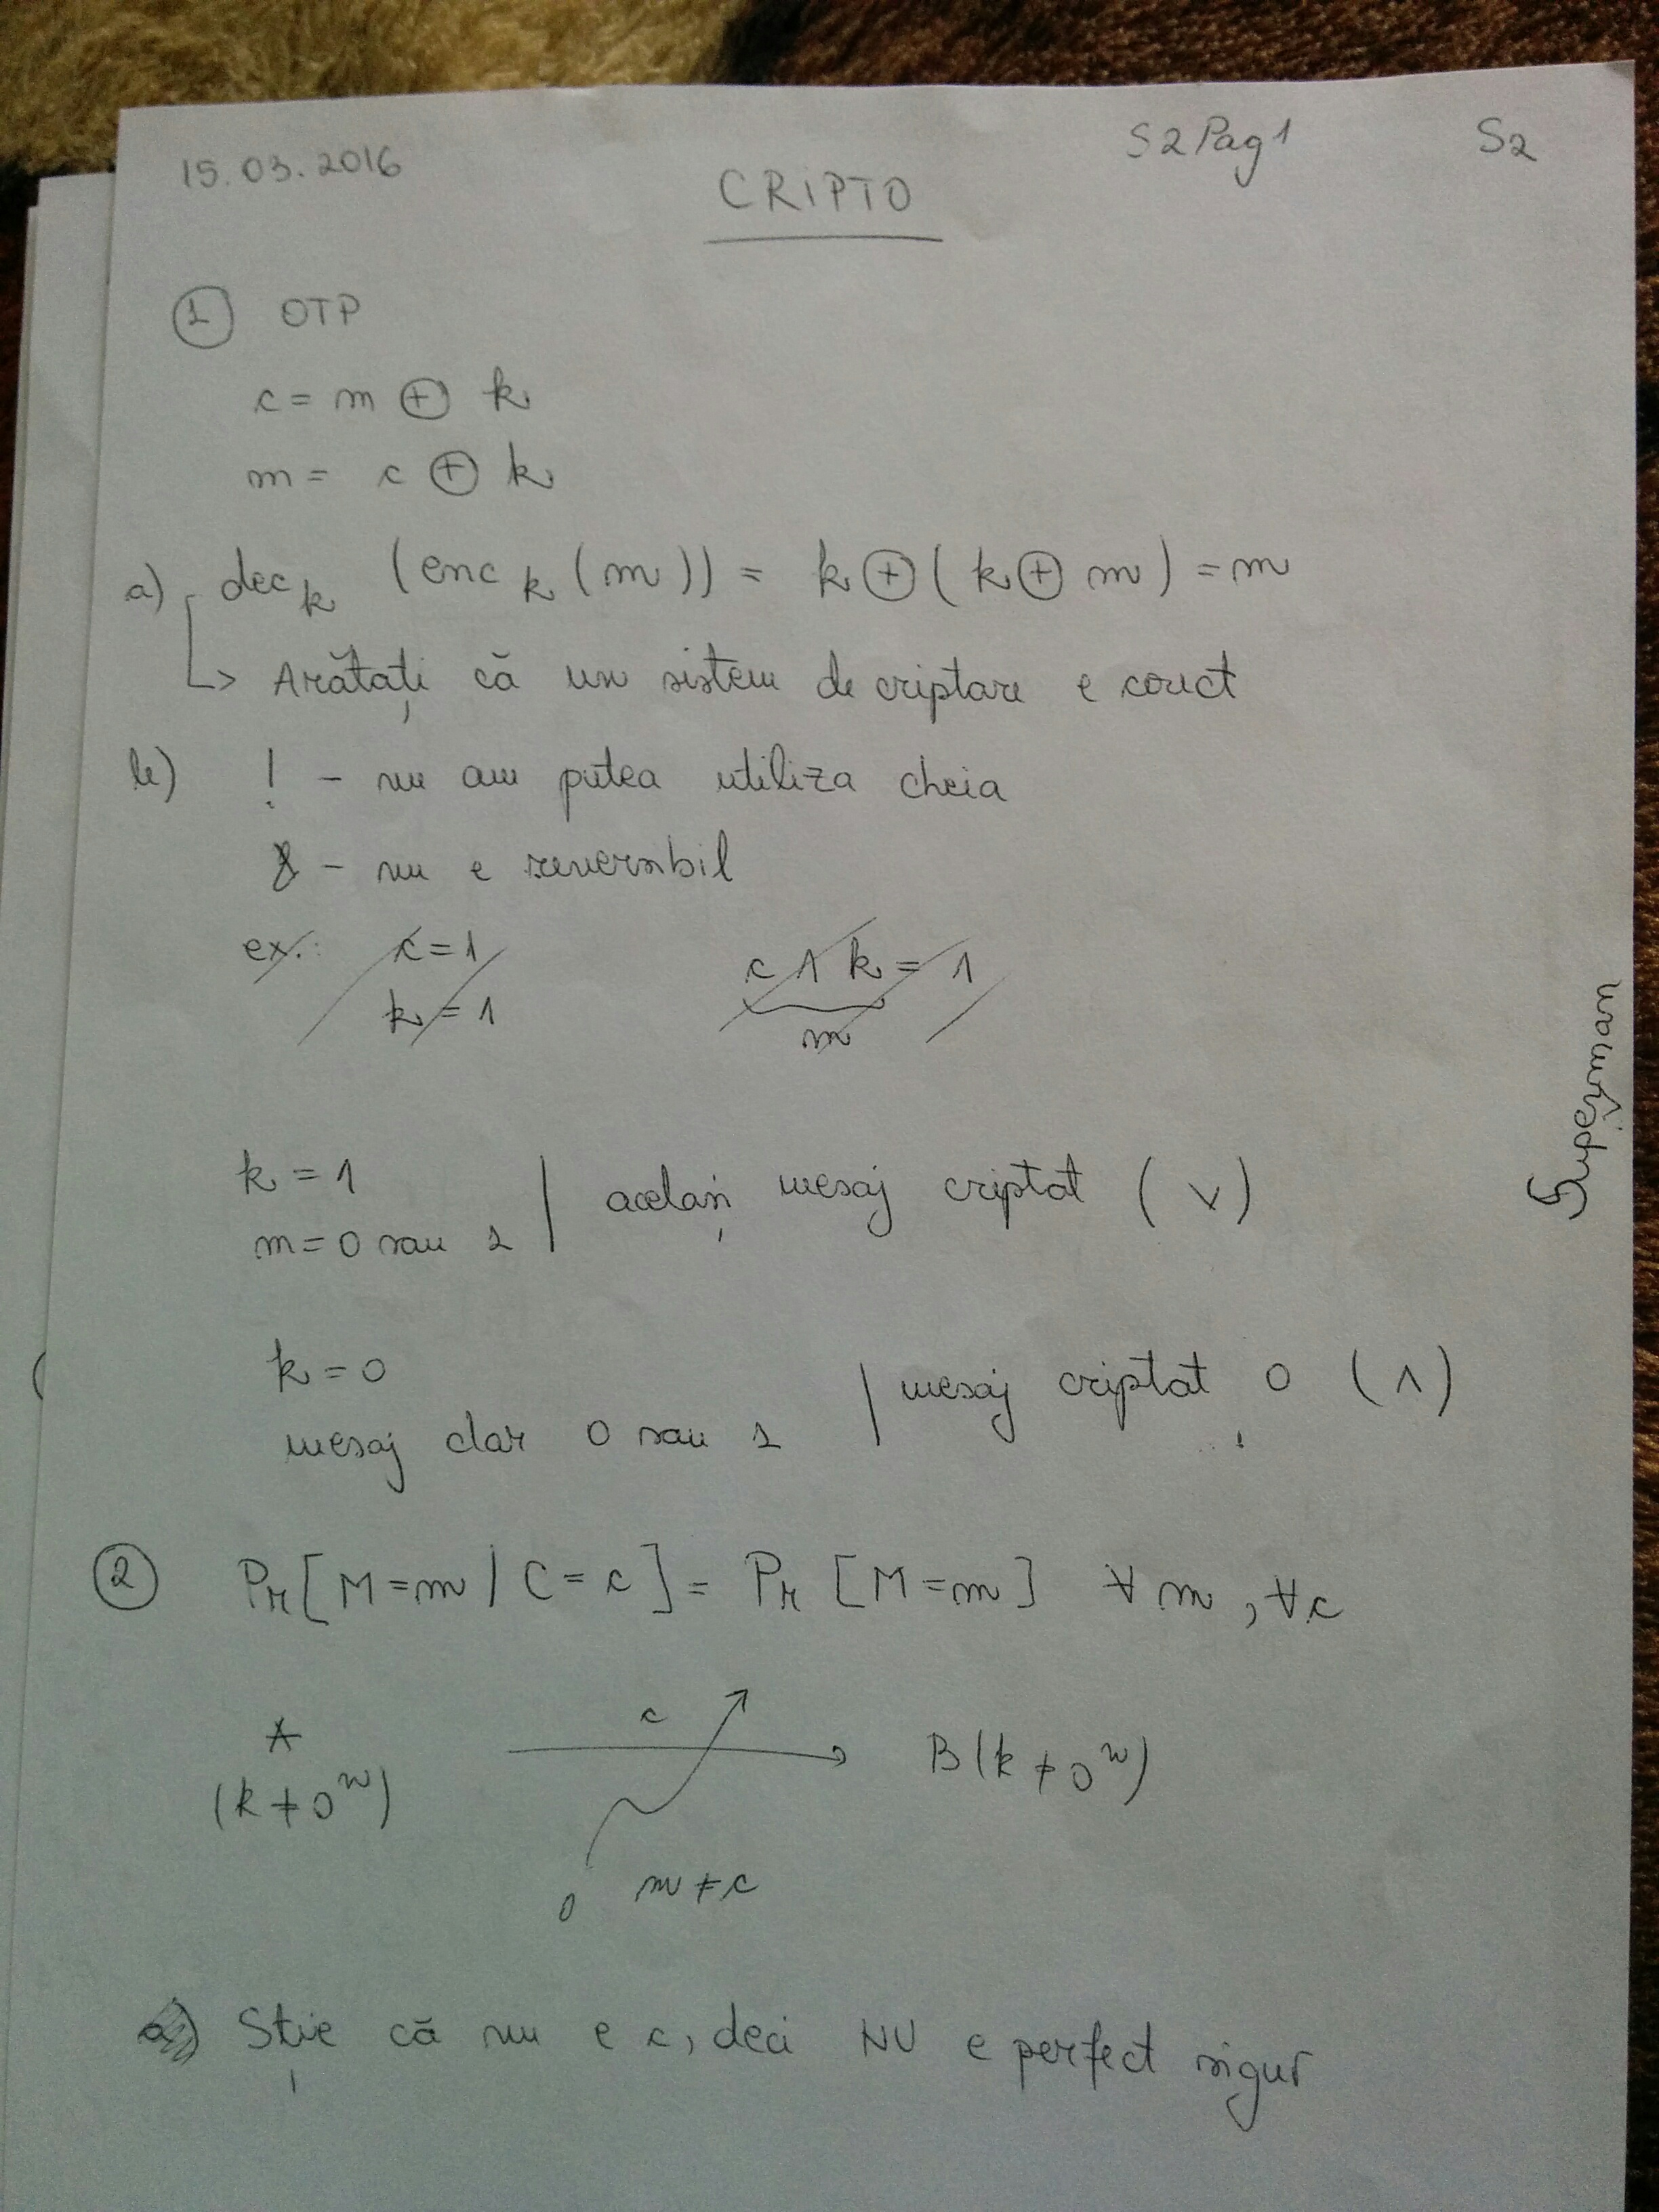 15.03.2016
S2Pag1
S2
CRIPTO
1 OTP
c = m ⊕ k
m = c ⊕ k
a) dec_k (enc_k (m)) = k ⊕ (k ⊕ m) = m
↳ Arătați că un sistem de criptare e corect
b) ! - nu am putea utiliza cheia
- nu e reversibil
ex.: c = 1 c ∧ k = 1
k = 1 m
k = 1
m = 0 sau 1 | același mesaj criptat (∨)
k = 0
mesaj clar 0 sau 1 | mesaj criptat 0 (∧)
2 Pr[M = m | C = c] = Pr[M = m] ∀m, ∀c
A c B (k ≠ 0^n)
(k ≠ 0^n)
m ≠ c
a) Știe că nu e c, deci NU e perfect sigur
Superman